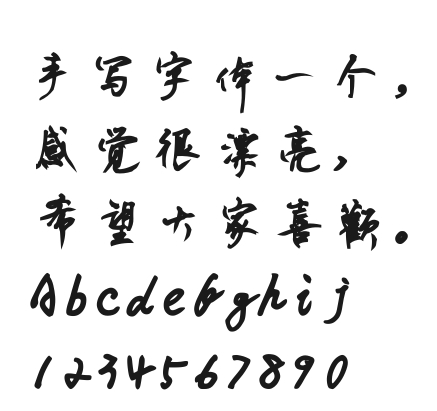 手写字体一个，
感觉很漂亮，
希望大家喜歡。
Abcdefghij
1234567890